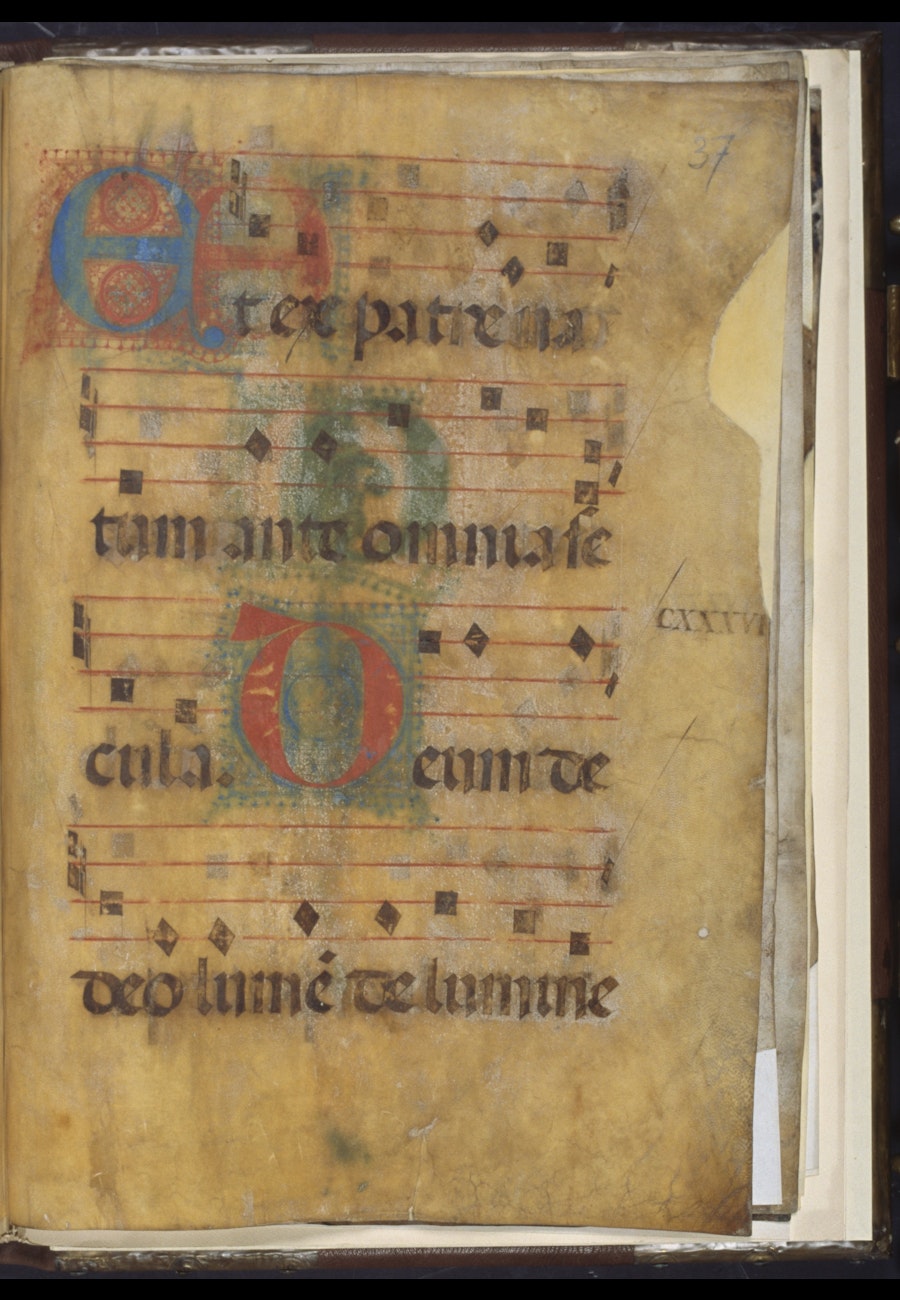 37
Et ex patre na
tum ante omnia se
cula. Deum de
CXXXVI
deo lumē de lumine